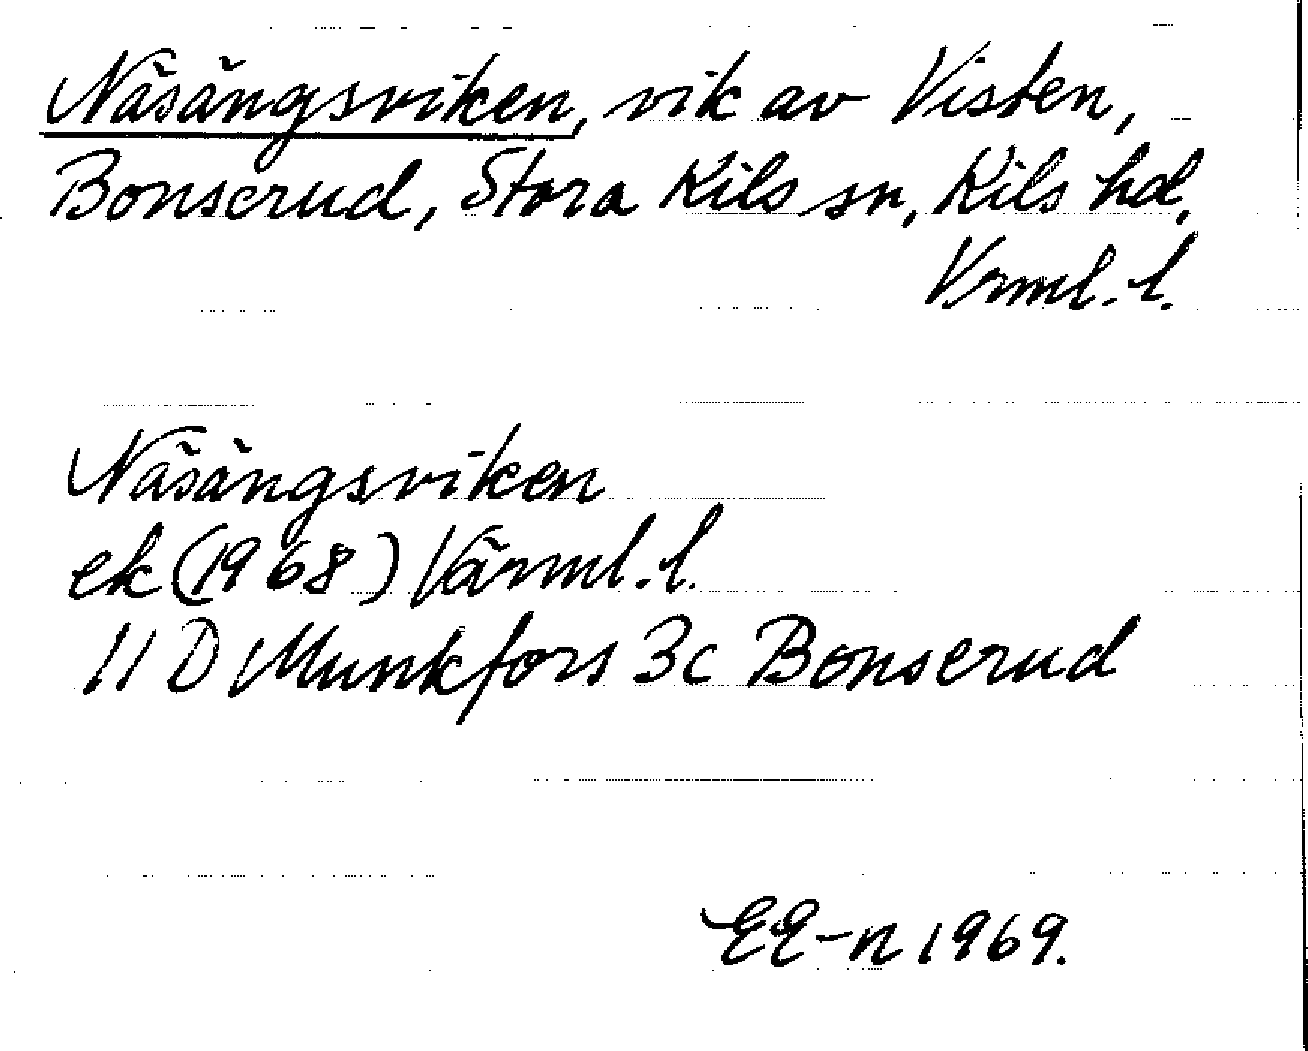 Näsängsviken, vik av Visten,
Bonserud, Stora Kils sn, Kils hd,
Vrml. l.
Näsängsviken
ek (1968) Värml. l.
11 D Munkfors 3c Bonserud
EE-n 1969.